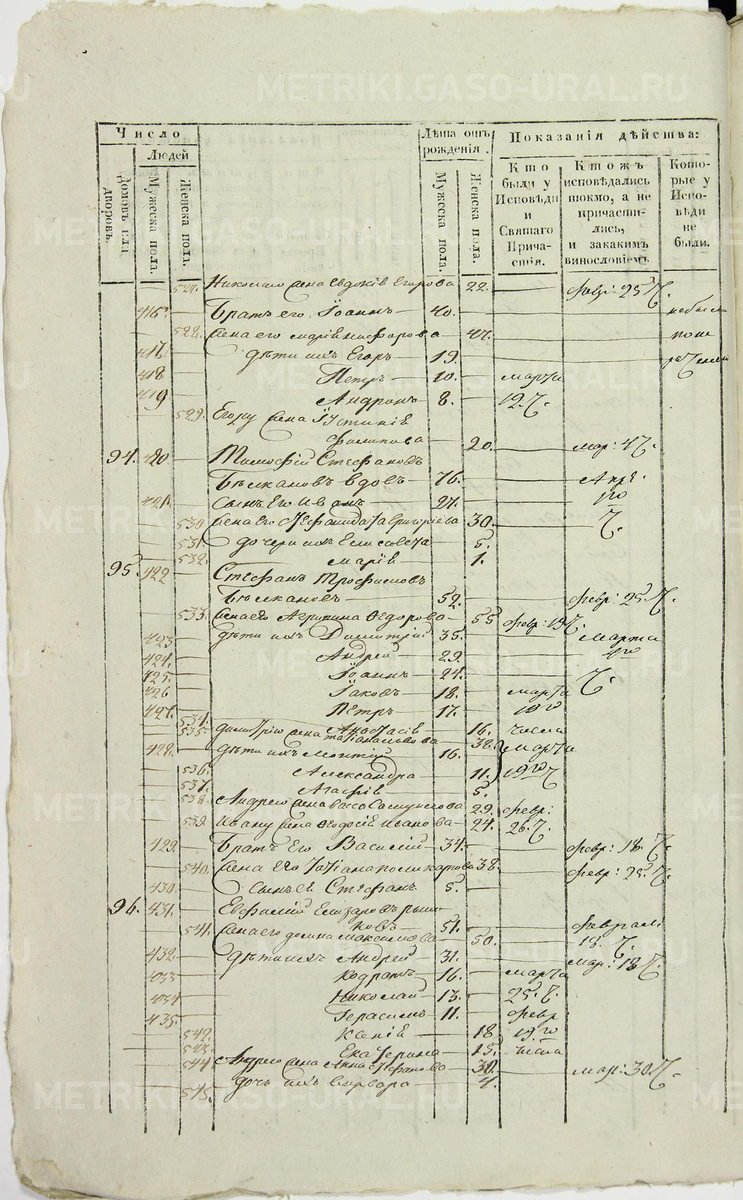 METRIKI.GASO-URAL.RU
Число
Людей
Домовъ или дворовъ.
Мужеска пола.
Женска пола.
Лѣта отъ рожденія.
Мужеска пола.
Женска пола.
Показанія дѣйства:
Кто были у Исповѣди и Святаго Причастія.
Ктожъ исповѣдались токмо, а не причастились, и закакимъ винословіемъ
Которые у Исповѣди не были.
527. жена Евдокія Егорова 22. февр: 25 Ч.
Братъ его Іоаннъ 40. небыли
528. жена его марія 47.
417. дѣти ихъ Егоръ 19.
418 Петръ 10. марта
419 Андронъ 8. 12. Ч.
529. Егору жена Іустинія
Филипова 20. мар: 4 Ч.
94. 420 Тимофій Стефановъ
Бѣлкановъ вдовъ 76. Апрѣ.
421. Сынъ Его Иванъ 27. 1го
530. жена Его 30. Ч.
531. дочери ихъ Елисавета 5.
532. марія 1.
95. 422 Стефанъ Трофимовъ
Бѣлкановъ 52. февр: 25. Ч.
533. жена его Агрипина Ѳедорова 55 февр: 19 Ч.
423 дѣти ихъ Димитрій 35. Марта
424. Андрей 29.
425. Іоаннъ 24. Ч.
426 Іаковъ 18. марта
427. Петръ 17.
534. 16. числа
535. димитрію жена 38. марта
428. дѣти ихъ 16.
536. Александра 11. 19го Ч
537. Агафія 5.
538. Андрею жена 29. февр:
539. Ивану жена Ѳеодосія иванова 24. 26. Ч.
429. Братъ Его Василій 34. февр: 18. Ч.
540. жена Его Татіана поликарпова 38. февр: 25. Ч.
430. Сынъ Стефанъ 5.
96. 431. Евфимій Елизаровъ
ковъ 51. февраля
541. жена его максимова 50. 18. Ч.
432. дѣти ихъ Андрей 31. мар: 18 Ч.
433 кодратъ 16. марта
434 Николай 13. 25. Ч.
435. Герасимъ 11. февр
542. Ксенія 18 19го
543. Екатерина 15. числа
544 Андрею жена Анна Стефанова 30. мар: 30. Ч.
545. дочь ихъ варвара 4.